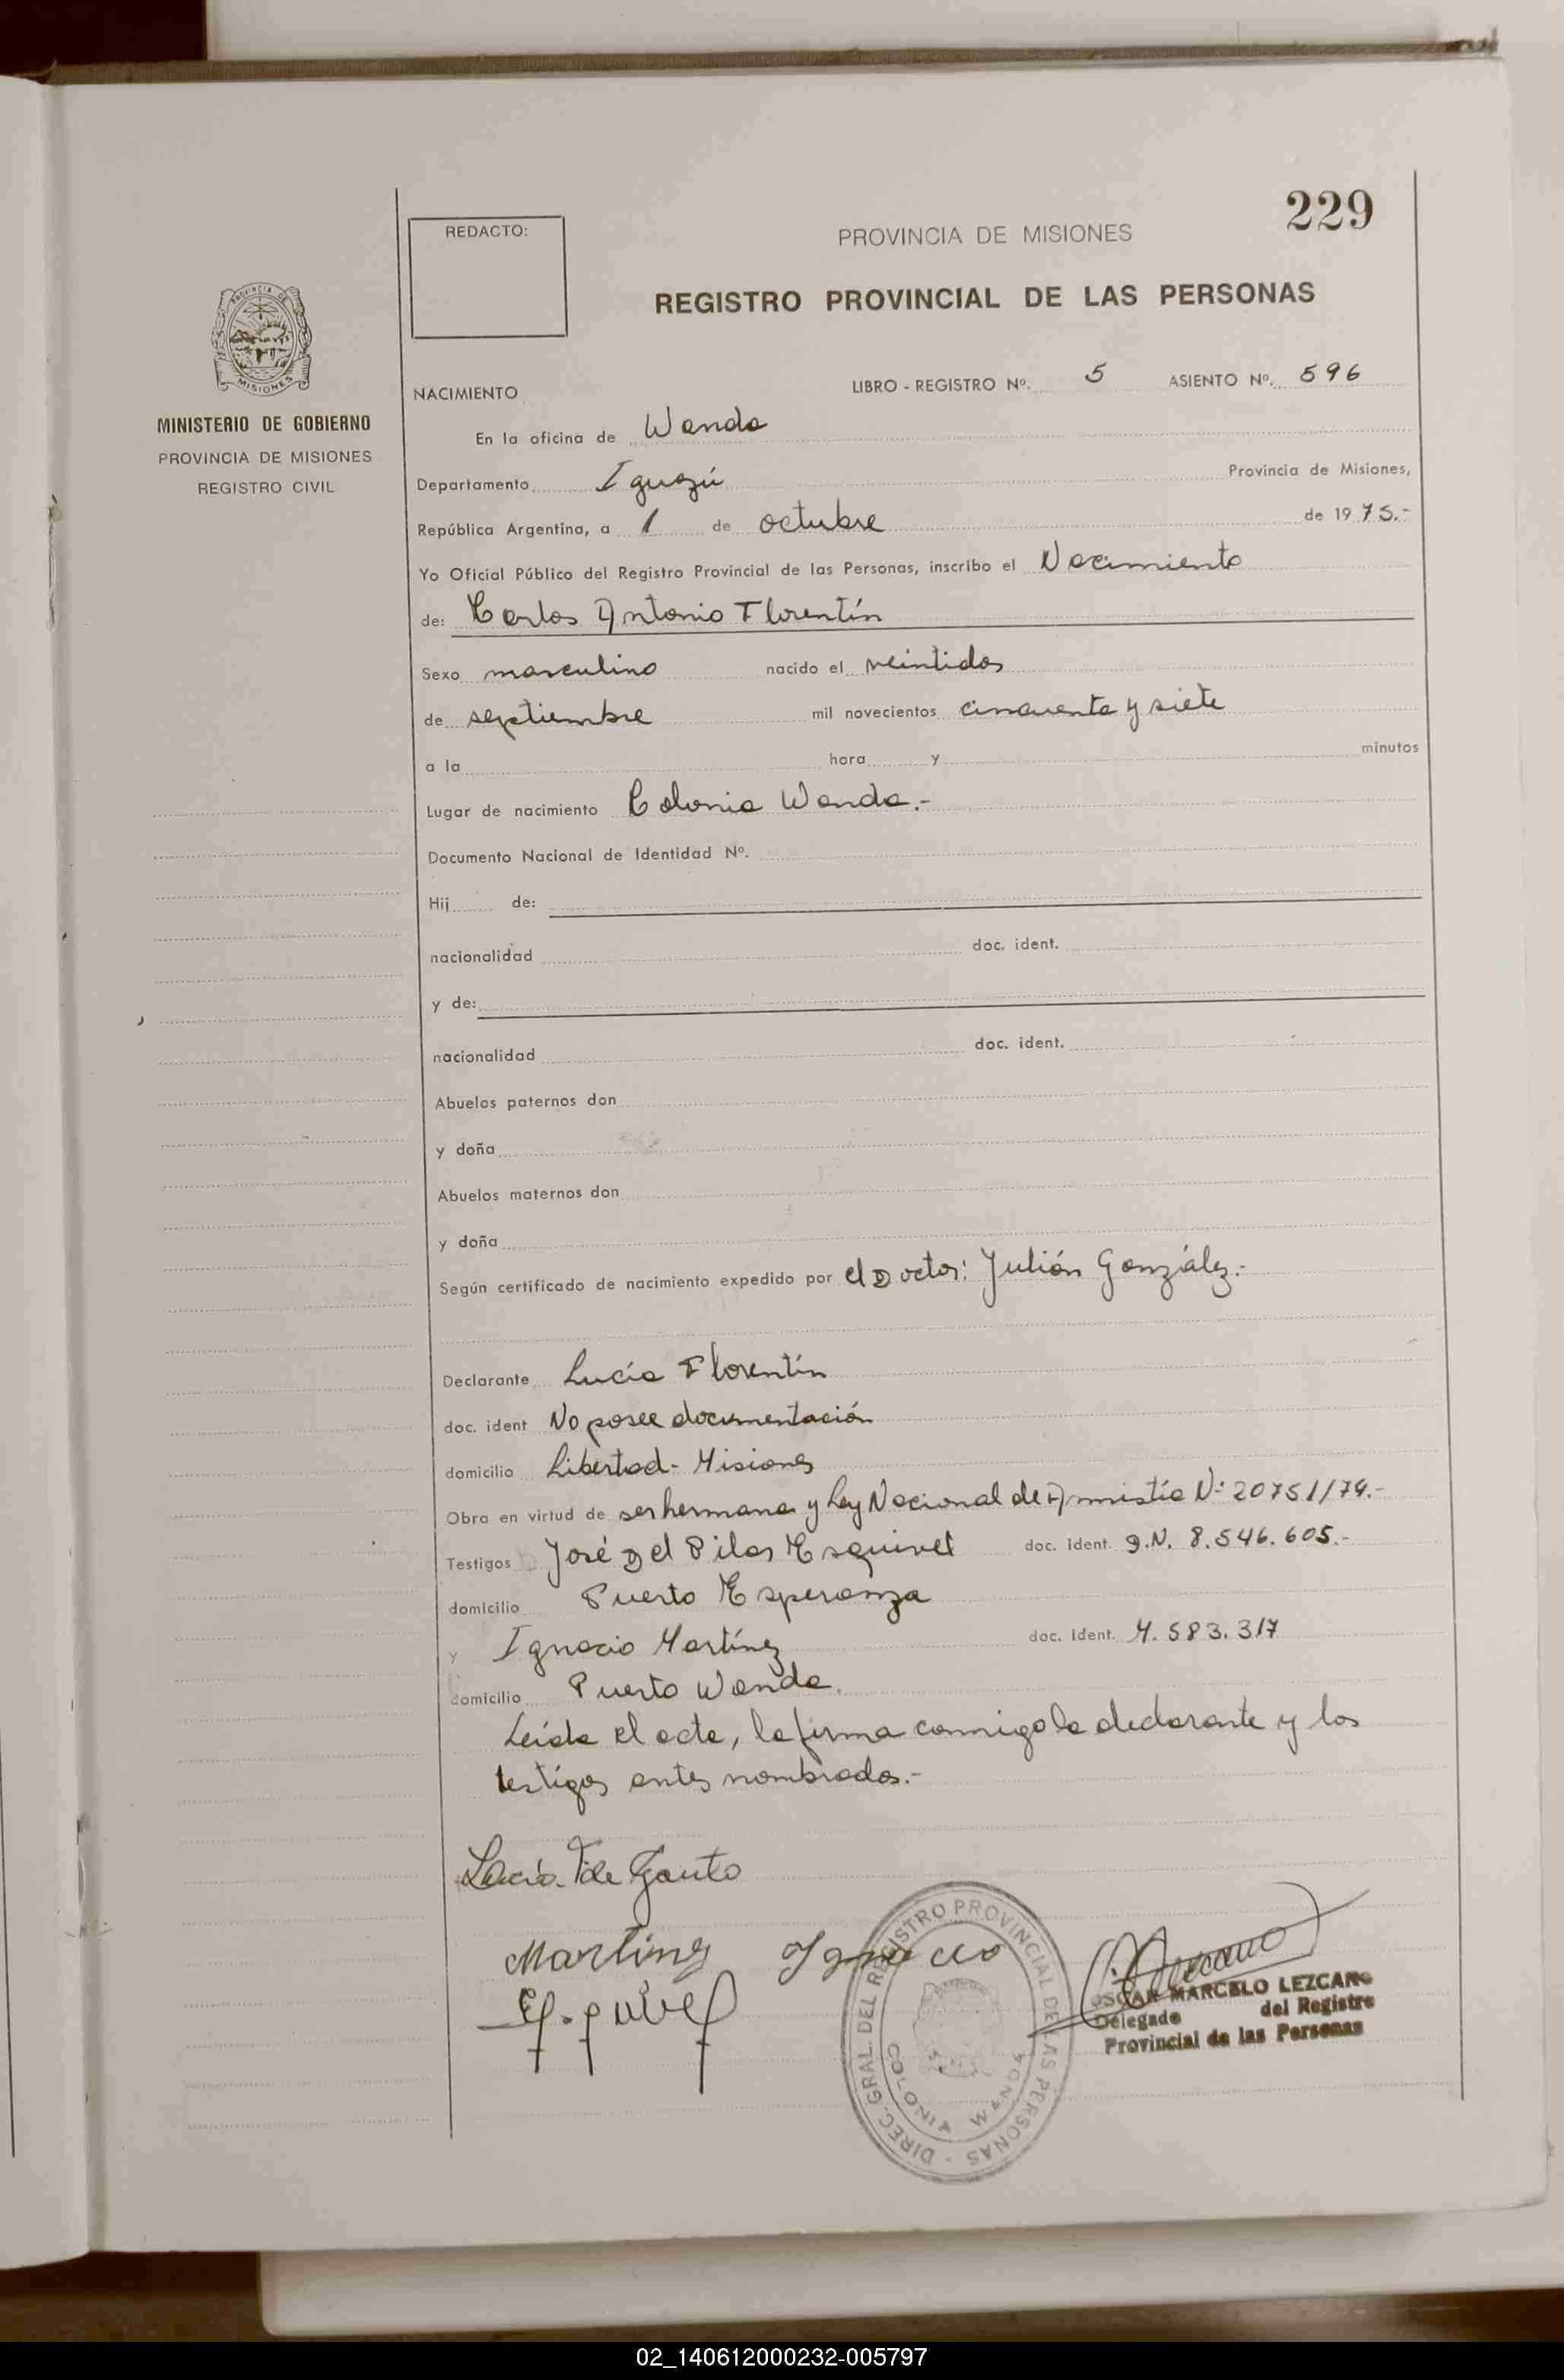 229
REDACTO:
PROVINCIA DE MISIONES
REGISTRO PROVINCIAL DE LAS PERSONAS
PROVINCIA DE
MISIONES
MINISTERIO DE GOBIERNO
PROVINCIA DE MISIONES
REGISTRO CIVIL
NACIMIENTO LIBRO - REGISTRO Nº. 5 ASIENTO Nº. 596
En la oficina de Wanda
Departamento Iguazú Provincia de Misiones,
República Argentina, a 1 de octubre de 1975.-
Yo Oficial Público del Registro Provincial de las Personas, inscribo el Nacimiento
de: Carlos Antonio Florentín
Sexo masculino nacido el veintidos
de septiembre mil novecientos cincuenta y siete
a la hora y minutos
Lugar de nacimiento Colonia Wanda.-
Documento Nacional de Identidad Nº.
Hij de:
nacionalidad doc. ident.
y de:
nacionalidad doc. ident.
Abuelos paternos don
y doña
Abuelos maternos don
y doña
Según certificado de nacimiento expedido por el Doctor: Julián González.-
Declarante Lucía Florentín
doc. ident No posee documentación
domicilio Libertad - Misiones
Obra en virtud de ser hermana y Ley Nacional de Amnistía Nº 20751/74.-
Testigos José Del Pilar Esquivel doc. ident. 8.546.605.-
domicilio Puerto Esperanza
y Ignacio Martínez doc. ident. M. 583.317
domicilio Puerto Wanda.
Leída el acta, la firma conmigo la declarante y los
testigos antes nombrados.-
Lucia F de
Martinez Ignacio
DIREC. GRAL. DEL REGISTRO PROVINCIAL DE LAS PERSONAS -
COLONIA WANDA
OSCAR MARCELO LEZCANO
Delegado del Registro
Provincial de las Personas
02_140612000232-005797